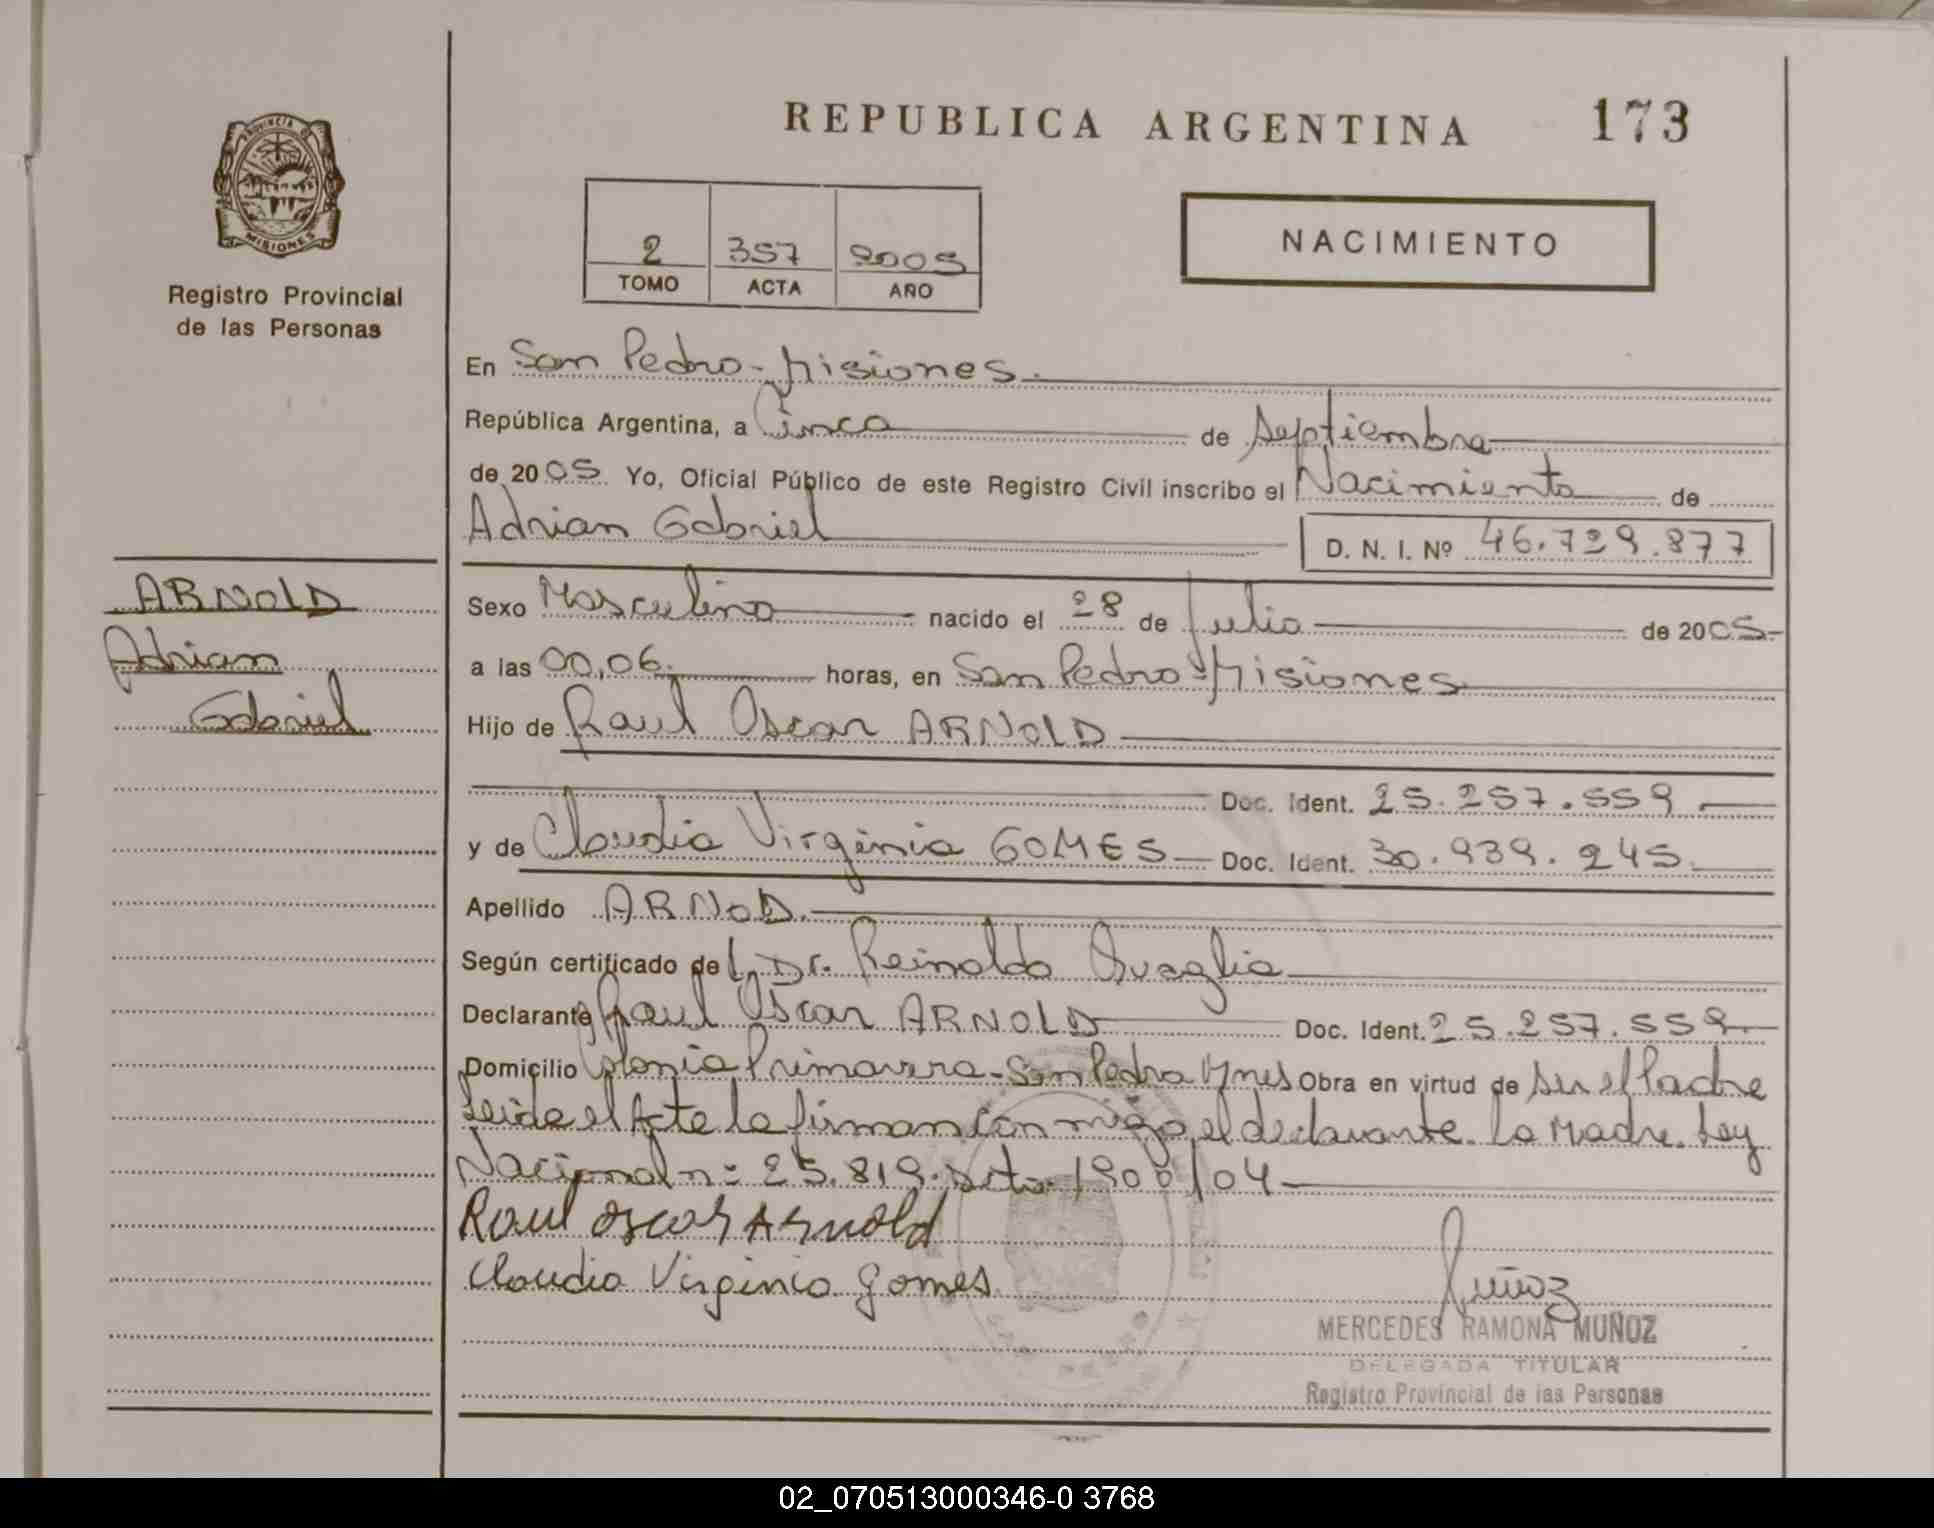 REPUBLICA ARGENTINA 173
PROVINCIA DE
MISIONES
Registro Provincial
de las Personas
2 357 2005
TOMO ACTA AÑO
NACIMIENTO
En San Pedro - Misiones.
República Argentina, a Cinco de Septiembre
de 2005 Yo, Oficial Público de este Registro Civil inscribo el Nacimiento de
Adrian Gabriel D. N. I. Nº 46.729.877
ARNOLD
Adrian
Gabriel
Sexo Masculino nacido el 28 de Julio de 2005-
a las 00,06. horas, en San Pedro - Misiones
Hijo de Raul Oscar ARNOLD
Doc. Ident. 25.257.559
y de Claudia Virginia GOMES Doc. Ident. 30.939.245
Apellido ARNOD
Según certificado de L Dr. Reinaldo
Declarante Raul Oscar ARNOLD Doc. Ident. 25.257.559
Domicilio Colonia Primavera - San Pedro Mnes Obra en virtud de ser el Padre
Leida el Acta la firman con migo, el declarante. la Madre. Ley
Nacional nº 25.819. Dcto. 1900/04
Raul oscar Arnold
Claudia Virginia gomes
Muñoz
MERCEDES RAMONA MUÑOZ
DELEGADA TITULAR
Registro Provincial de las Personas
02_070513000346-0 3768